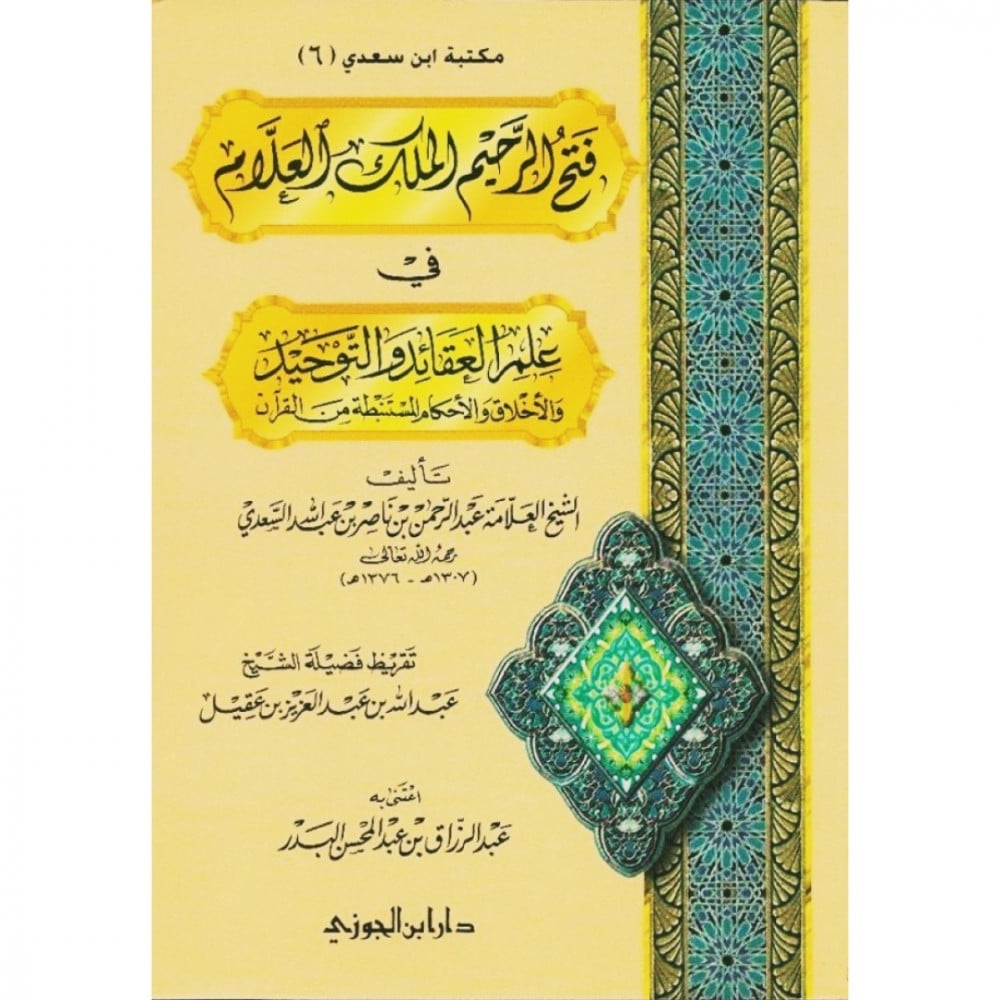 مكتبة ابن سعدي (٦)
فَتْحُ الرَّحِيمِ الملك العَلَّام
في
عِلم العقائد والتَّوحيد
والأخلاق والأحكام المستنبطة من القرآن
تأليف
الشيخ العلّامة عبد الرحمن بن ناصر بن عبد الله السّعدي
رحمه الله تعالى
(١٣٠٧هـ - ١٣٧٦هـ)
تقريظ فضيلة الشيخ
عبد الله بن عبد العزيز بن عقيل
اعتنى به
عبد الرزاق بن عبد المحسن البدر
دار ابن الجوزي